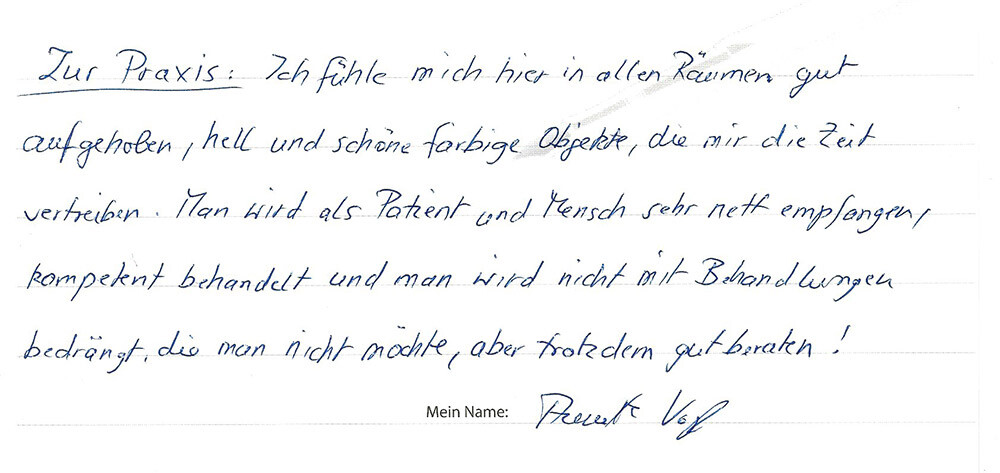 Zur Praxis: Ich fühle mich hier in allen Räumen gut
aufgehoben, hell und schöne farbige Objekte, die mir die Zeit
vertreiben. Man wird als Patient und Mensch sehr nett empfangen,
kompetent behandelt und man wird nicht mit Behandlungen
bedrängt, die man nicht möchte, aber trotzdem gut beraten!
Mein Name: